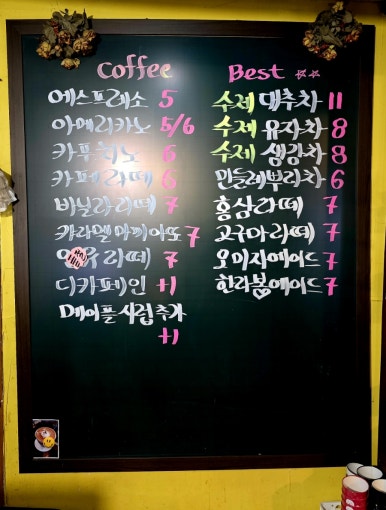 Coffee
에스프레소 5
아메리카노 5/6
카푸치노 6
카페라떼 6
바닐라라떼 7
카라멜마끼아또 7
유라떼 7
디카페인 +1
메이플시럽추가
+1
Best
수제 대추차 11
수제 유자차 8
수제 생강차 8
민들레뿌리차 6
홍삼라떼 7
고구마라떼 7
오미자에이드 7
한라봉에이드 7